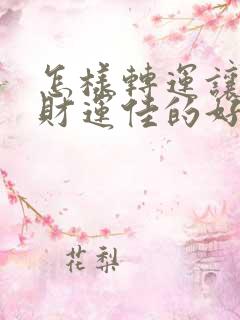 怎樣轉運讓
財運佳的好
花梨